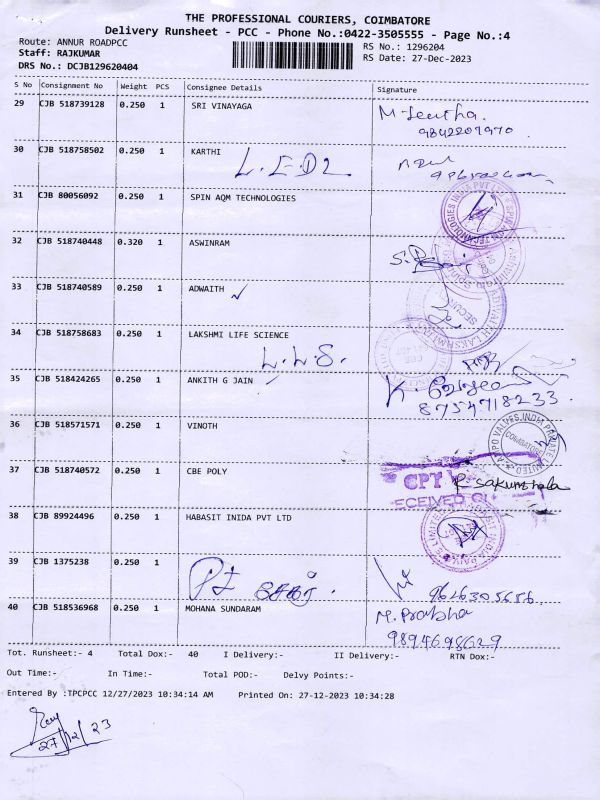 THE PROFESSIONAL COURIERS, COIMBATORE
Delivery Runsheet - PCC - Phone No.:0422-3505555 - Page No.:4
Route: ANNUR ROADPCC
RS No.: 1296204
Staff: RAJKUMAR
RS Date: 27-Dec-2023
DRS No.: DCJB129620404
S No Consignment No Weight PCS Consignee Details Signature
29 CJB 518739128 0.250 1 SRI VINAYAGA
9842209970.
30 CJB 518758502 0.250 1 KARTHI
31 CJB 80056092 0.250 1 SPIN AQM TECHNOLOGIES
32 CJB 518740448 0.320 1 ASWINRAM
33 CJB 518740589 0.250 1 ADWAITH
34 CJB 518758683 0.250 1 LAKSHMI LIFE SCIENCE
L.L.S.
35 CJB 518424265 0.250 1 ANKITH G JAIN
8754718233.
36 CJB 518571571 0.250 1 VINOTH
COIMBATORE
37 CJB 518740572 0.250 1 CBE POLY
CPT R. Sakunthala
38 CJB 89924496 0.250 1 HABASIT INIDA PVT LTD
39 CJB 1375238 0.250 1
9616305656.
40 CJB 518536968 0.250 1 MOHANA SUNDARAM M. Prabha
9894698629
Tot. Runsheet:- 4 Total Dox:- 40 I Delivery:- II Delivery:- RTN Dox:-
Out Time:- In Time:- Total POD:- Delvy Points:-
Entered By :TPCPCC 12/27/2023 10:34:14 AM Printed On: 27-12-2023 10:34:28
27/12/23